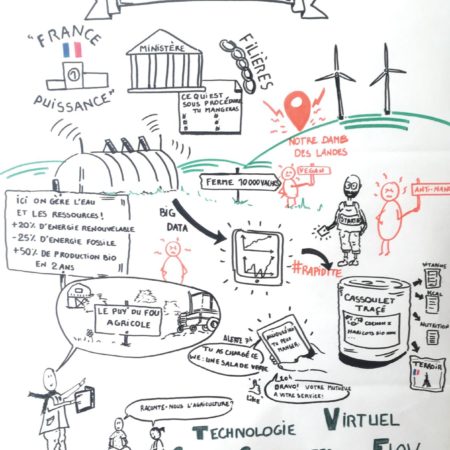 "FRANCE
PUISSANCE"
1
MINISTÈRE
FILIÈRES
CE QUI EST
SOUS PROCÉDURE
TU MANGERAS
NOTRE DAME
DES LANDES
FERME 10000 VACHES
VEGAN
ANTI-
ICI ON GÈRE L'EAU
ET LES RESSOURCES!
+20% D'ÉNERGIE RENOUVELABLE
-25% D'ÉNERGIE FOSSILE
+50% DE PRODUCTION BIO
EN 2 ANS
BIG
DATA
#RAPIDTTE
CASSOULET
TRAÇÉ
HARICOTS BIO
KCAL
NUTRITION
TERROIR
LE PUY DU FOU
AGRICOLE
ALERTE
TU AS CHARGÉ CE
WE: UNE SALADE VERTE
TU PEUX
MANGER
LIKE
BRAVO! VOTRE MUTUELLE
A VOTRE SERVICE!
RACONTE-NOUS L'AGRICULTURE?
TECHNOLOGIE VIRTUEL
FLOW